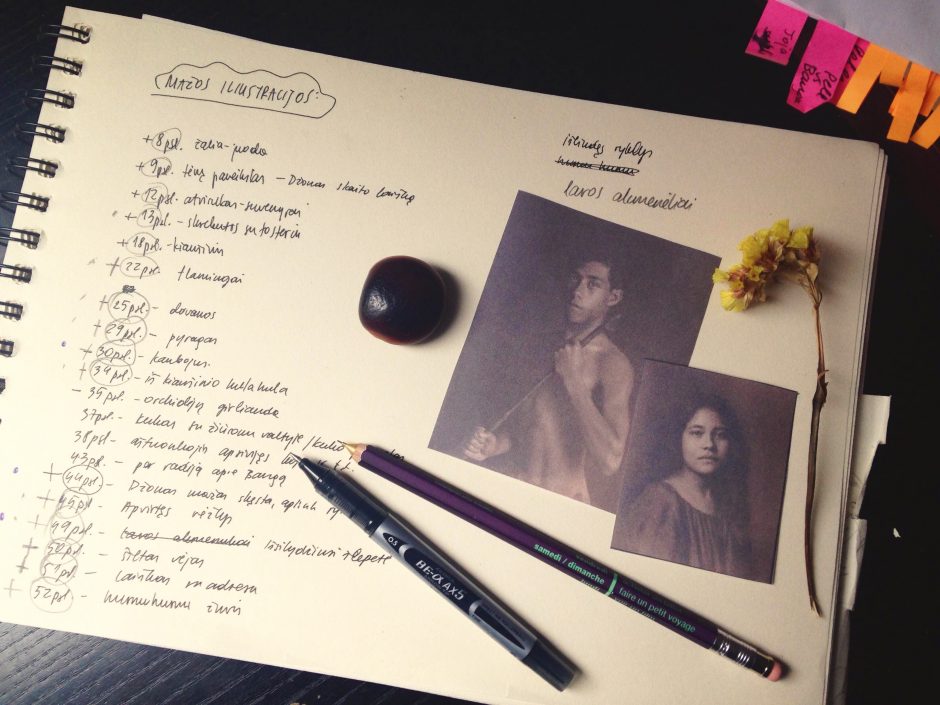 MAŽOS ILIUSTRACIJOS:
+ 8psl. žalia-juoda
+ 9psl. tėvų paveikslas – Džonas skaito laišką
+ 12psl. atvirukas-suvenyras
+ 13psl. - skrebutis su tosteriu
+ 18psl. - kiaušinis
+ 22psl. flamingai
+ 25psl. - dovanos
+ 29psl. - pyragas
+ 30psl. - kaubojus
+ 34psl. - iš kiaušinio hula hula
- 35psl. - orchidėjų girlianda
37psl. - kukas su žiūronu valtyje /
38psl. - aštuonkojis apvirtęs
43psl. - per radiją apie bangą
+ 44psl. - Džonas mažas skęsta, aplink
+ 45psl. - Apvirtęs vėžlys
+ 49psl. - lavos akmenukai išsilydžiusi šlepetė
+ 50psl. - šiltas vėjas
+ 51psl. - laiškas su adresu
+ 52psl. - humuhumu žuvis
išlindęs ryklys
lavos akmenėliai
0.5
BE-α AX5
samedi / dimanche
faire un petit voyage